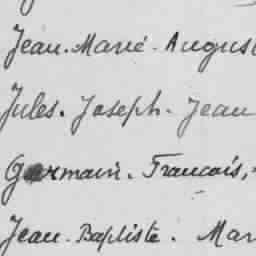 Jean-Marie-August
Jules. Joseph. Jean
Germain. Francais,
Jean-Baptiste. Mar